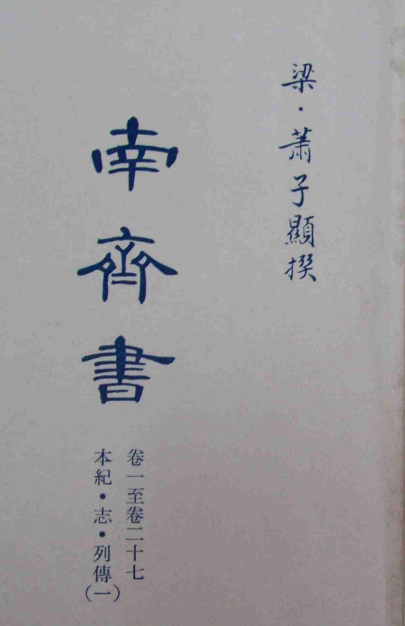 梁·蕭子顯撰
南齊書
卷一至卷二十七
本紀•志•列傳(一)